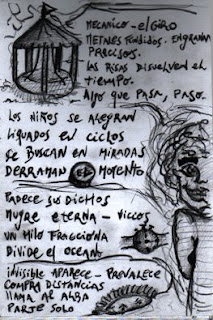 MECANICO - el GIRO
METALES FUNDIDOS. ENGRANAN
PRECISOS.
LAS RISAS DISUELVEN EL
TIEMPO.
Algo que PASA, PASO.
LOS NIÑOS SE ALEGRAN
LIQUADOS EN CICLOS
SE BUSCAN EN MIRADAS
DERRAMAN EL MOMENTO
PADECE SUS DICHOS
NUTRE ETERNA - VICIOS
UN HILO FRACCIONA
DIVIDE EL OCEANO
INVISIBLE APARECE - PREVALECE
COMPRA DISTANCIAS
LLAMA AL ALBA
PARTE SOLO